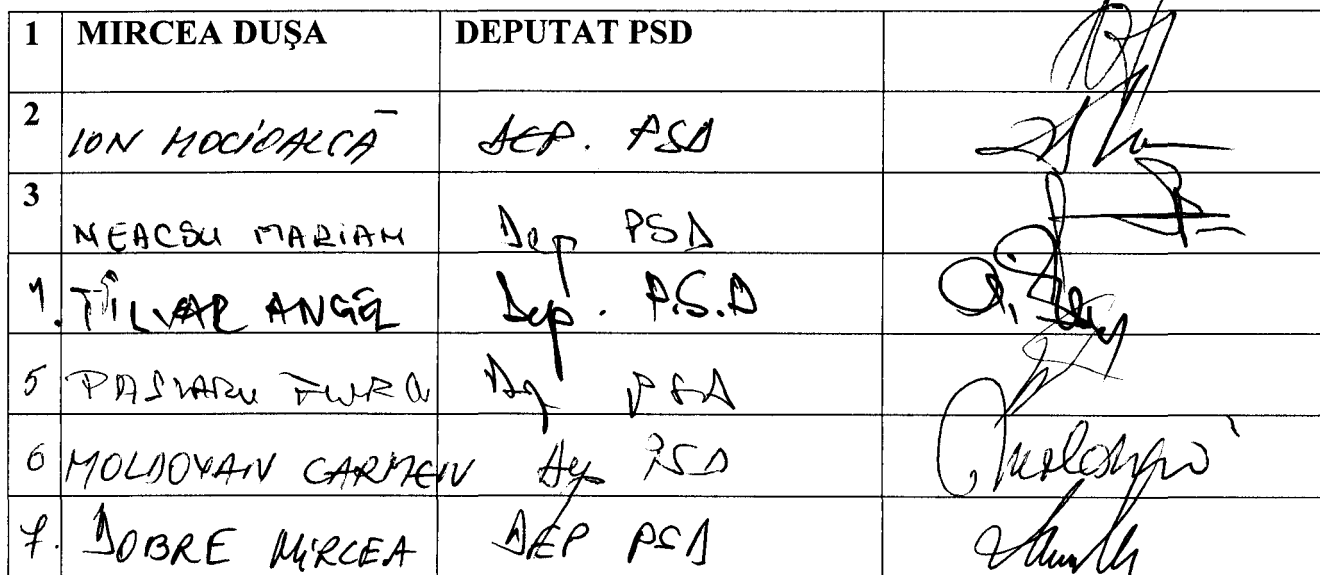 1 MIRCEA DUŞA DEPUTAT PSD
2 ION MOCIOALCĂ DEP. PSD
3 NEACSU MARIAN Dep PSD
4. TÎLVĂR ANGEL Dep. P.S.D
5 Dep PSD
6 MOLDOVAN CARMEN Dep PSD
7. DOBRE MIRCEA DEP PSD